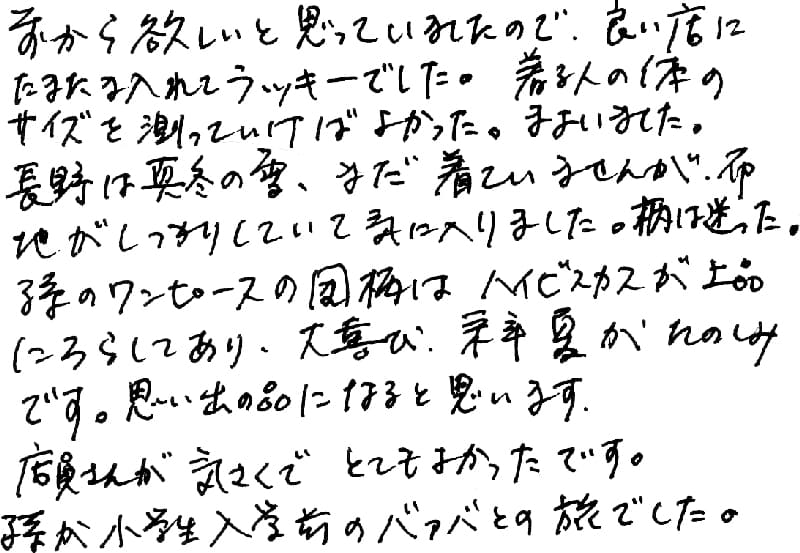 前から欲しいと思っていましたので、良い店に
たまたま入れてラッキーでした。着る人の体の
サイズを測っていけばよかった。まよいました。
長野は真冬の雪、まだ着ていませんが、布
地がしっかりしていて気に入りました。柄は迷った。
孫のワンピースの図柄はハイビスカスが上品
にちらしてあり、大喜び、来年夏がたのしみ
です。思い出の品になると思います。
店員さんが気さくでとてもよかったです。
孫が小学生入学前のバァバとの旅でした。